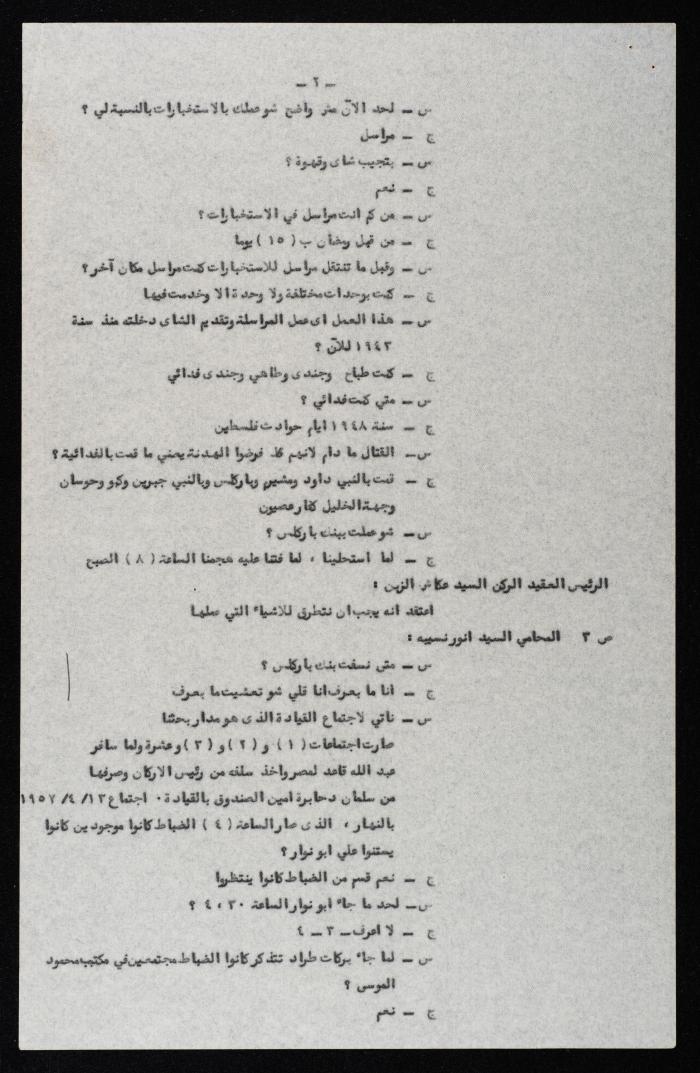 — ٢ —
س — لحد الآن مش واضح شو عملك بالاستخبارات بالنسبة لي ؟
ج — مراسل
س — بتجيب شاى وقهوة ؟
ج — نعم
س — من كم انت مراسل في الاستخبارات ؟
ج — من قبل رمضان ب ( ١٥ ) يوما
س — وقبل ما تنتقل مراسل للاستخبارات كنت مراسل مكان آخر ؟
ج — كنت بوحدات مختلفة ولا وحدة الا وخدمت فيها
س — هذا العمل اى عمل المراسلة وتقديم الشاى دخلته منذ سنة
١٩٤٣ للآن ؟
ج — كنت طباخ وجندى وطاهي وجندى فدائي
س — متي كنت فدائي ؟
ج — سنة ١٩٤٨ ايام حوادث فلسطين
س — القتال ما دام لانهم فرضوا الهدنة يعني ما قمت بالفدائية ؟
ج — قمت بالنبي داود ومشيرم وباركلس وبالنبي جبرين وكبو وحوسان
وجهة الخليل كفار عصيون
س — شو عملت ببنك باركلس ؟
ج — لما استحلينا ، لما فتنا عليه هجمنا الساعة ( ٨ ) الصبح
الرئيس العقيد الركن السيد عكاش الزبن :
اعتقد انه يجب ان نتطرق للاشياء التي عملها
ص ٣ المحامي السيد انور نسيبه :
س — متى نسفت بنك باركلس ؟
ج — انا ما بعرف انا قلي شو تعشيت ما بعرف
س — ناتي لاجتماع القيادة الذى هو مدار بحثنا
صارت اجتماعات ( ١ ) و ( ٢ ) و ( ٣ ) وعشرة ولما سافر
عبد الله قاعد لمصر واخذ سلفه من رئيس الاركان وصرفها
من سلمان دحابرة امين الصندوق بالقيادة ٠ اجتماع ١٣/ ٤/ ١٩٥٧
بالنهار ، الذى صار الساعة ( ٤ ) الضباط كانوا موجودين كانوا
يستنوا علي ابو نوار ؟
ج — نعم قسم من الضباط كانوا ينتظروا
س — لحد ما جاء ابو نوار الساعة ٣٠ ، ٤ ؟
ج — لا اعرف — ٣ — ٤
س — لما جاء بركات طراد تتذكر كانوا الضباط مجتمعين في مكتب محمود
الموسى ؟
ج — نعم